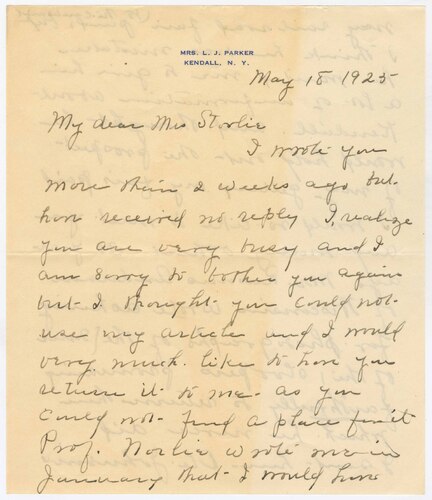 MRS. L. J. PARKER
KENDALL, N. Y.
May 18 1925
My dear Mr Storlie
I wrote you
more than 2 weeks ago but
have received no reply I, realize
you are very busy and I
am sorry to bother you again
but I thought you could not
use my article and I would
very much like to have you
return it to me as you
could not find a place for it
Prof. Norlie wrote me in
January that I would have